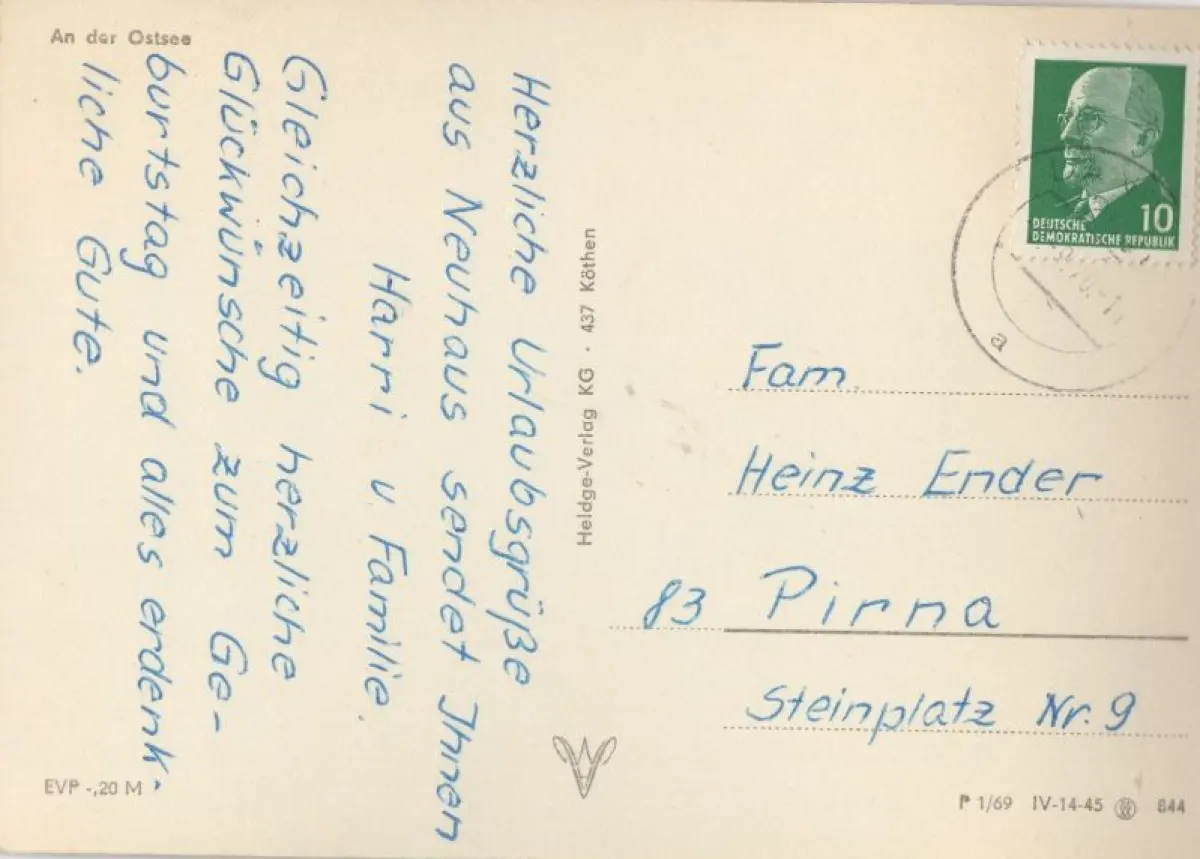 An der Ostsee
Herzliche Urlaubsgrüße
aus Neuhaus sendet Ihnen
Harri u. Familie.
Gleichzeitig herzliche
Glückwünsche zum Ge-
burtstag und alles erdenk-
liche Gute.
EVP -,20 M
Heldge-Verlag KG · 437 Köthen
10
DEUTSCHE
DEMOKRATISCHE REPUBLIK
a
Fam.
Heinz Ender
83 Pirna
Steinplatz Nr. 9
P 1/69 IV-14-45 844